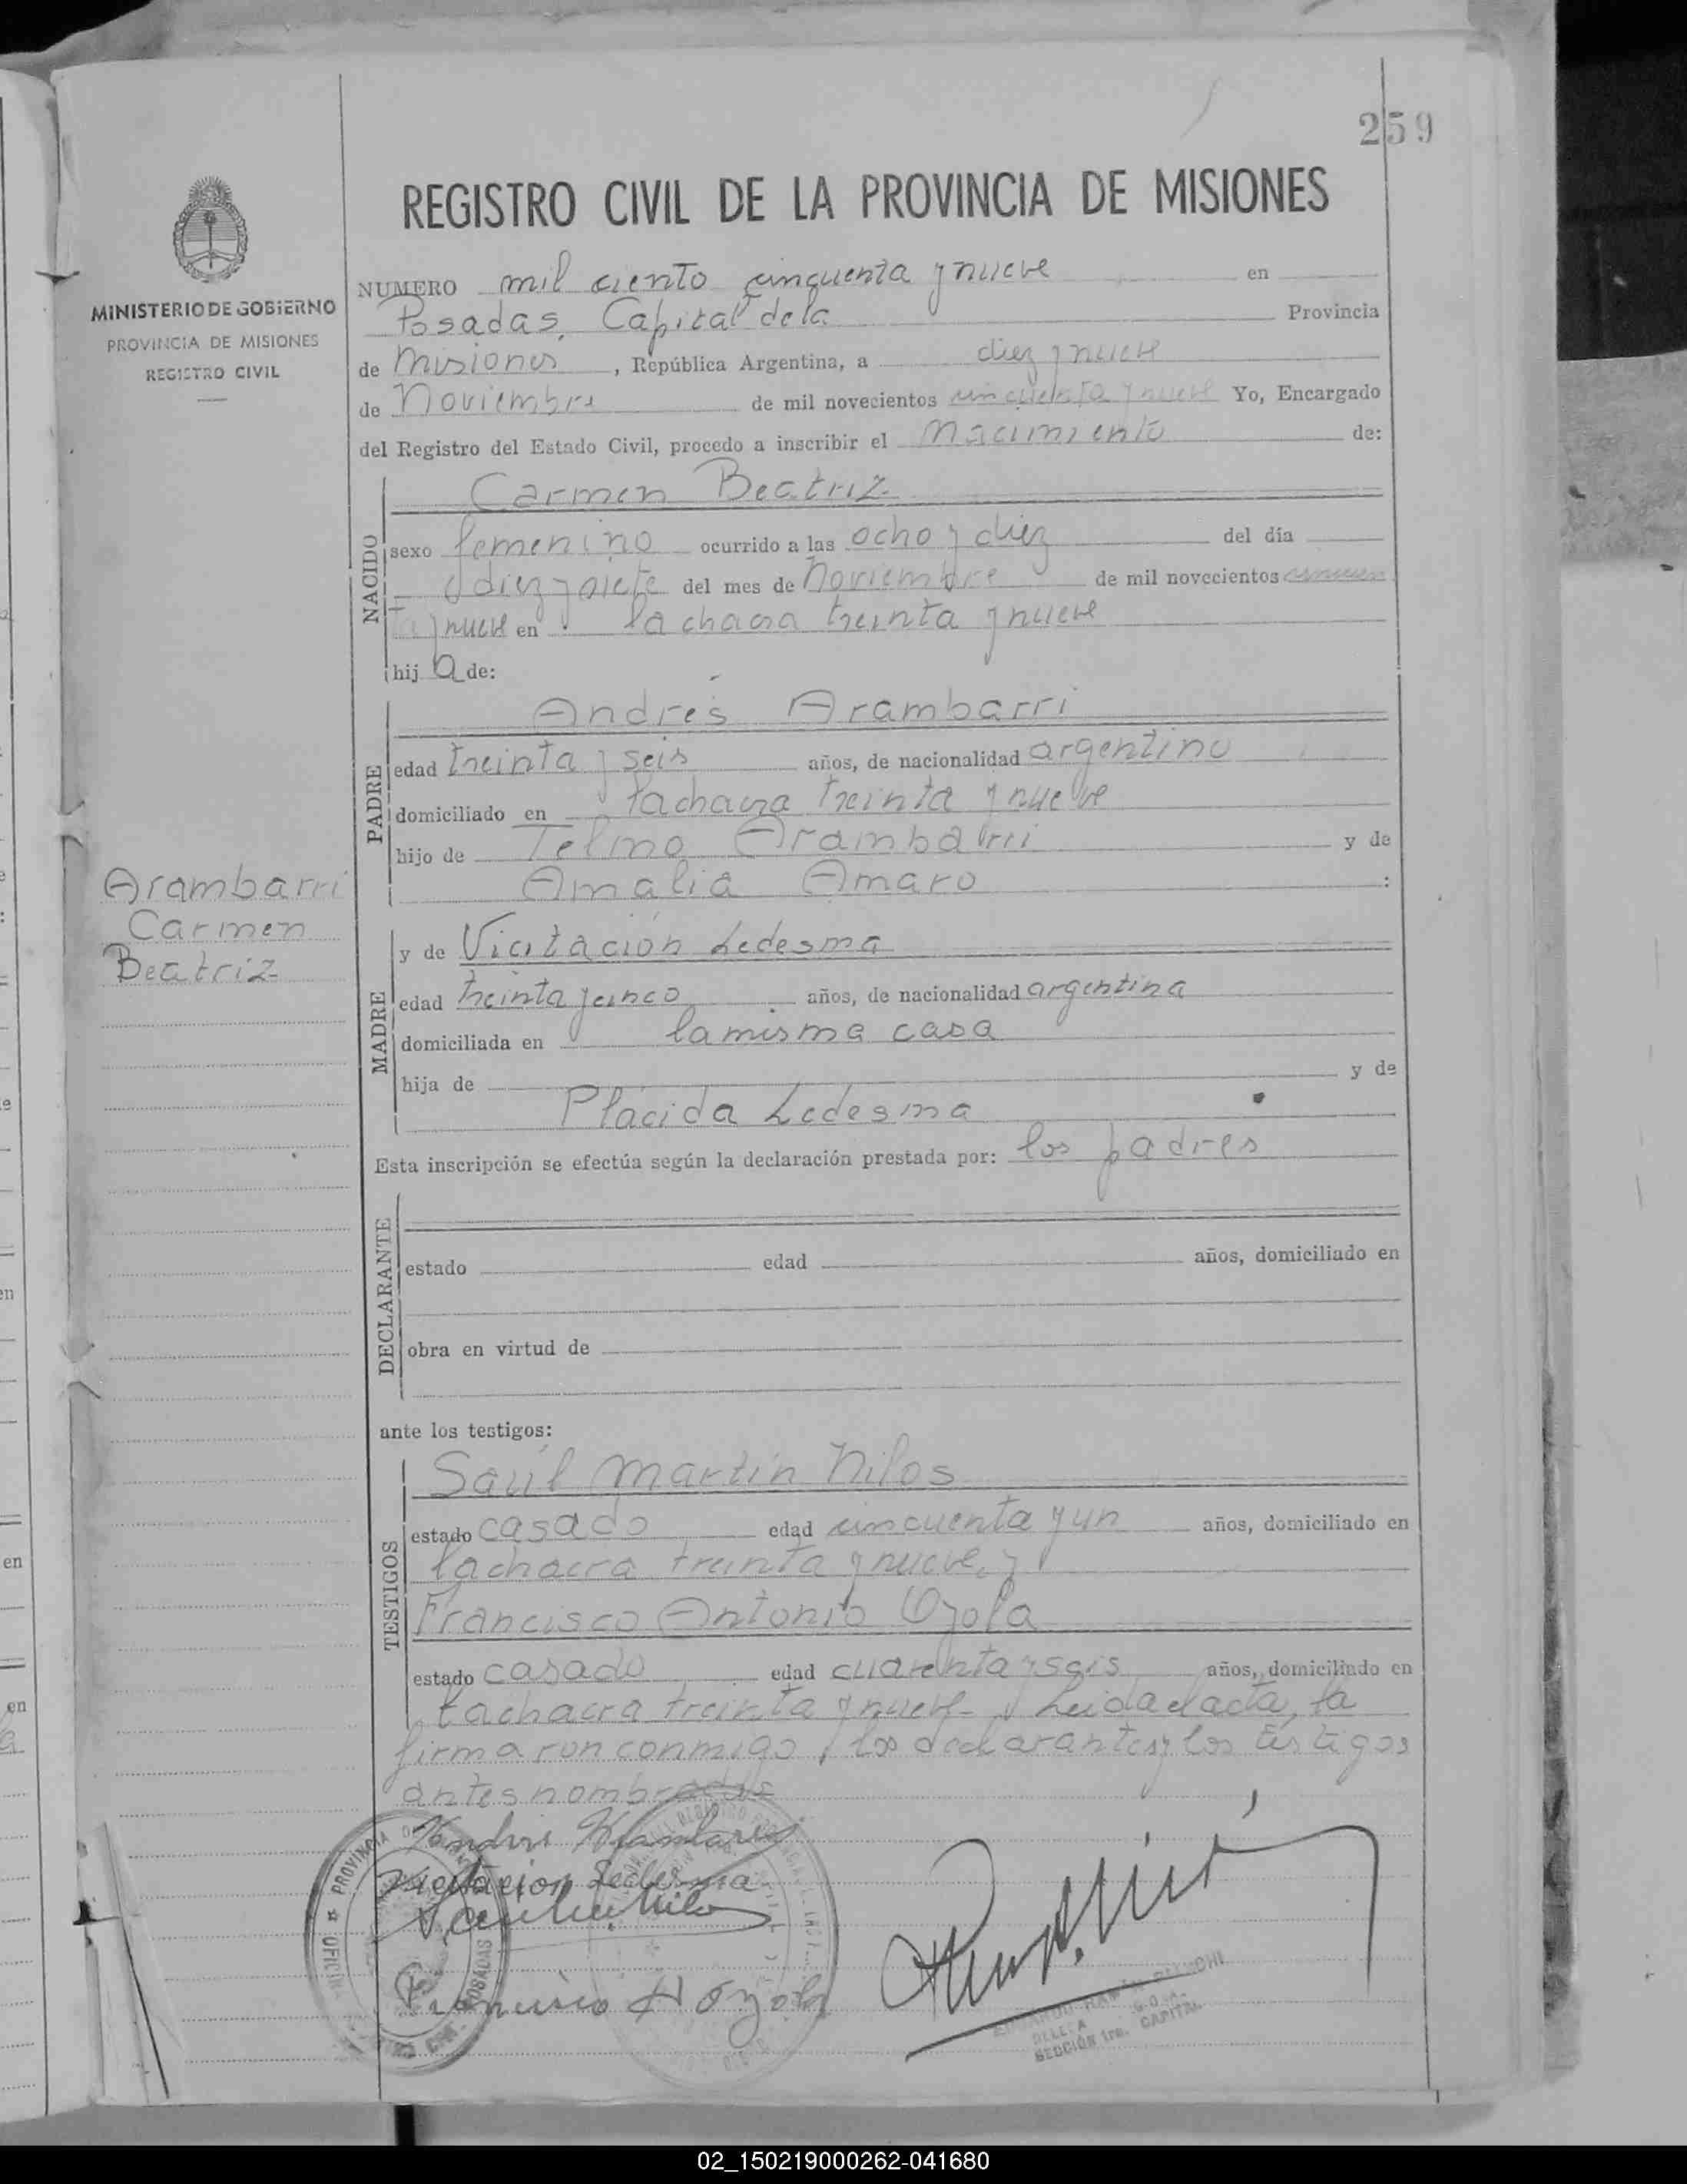 259
REGISTRO CIVIL DE LA PROVINCIA DE MISIONES
MINISTERIO DE GOBIERNO
PROVINCIA DE MISIONES
REGISTRO CIVIL
NUMERO mil ciento cincuenta y nueve en
Posadas, Capital de la Provincia
de Misiones, República Argentina, a diez y nueve
de Noviembre de mil novecientos cincuenta y nueve Yo, Encargado
del Registro del Estado Civil, procedo a inscribir el Nacimiento de:
NACIDO
Carmen Beatriz
sexo femenino ocurrido a las ocho y diez del día
diez y siete del mes de Noviembre de mil novecientos cincuen
ta y nueve en la chacra treinta y nueve
hij a de:
PADRE
Andrés Arambarri
edad treinta y seis años, de nacionalidad argentino
domiciliado en la chacra treinta y nueve
hijo de Telmo Arambarri y de
Amalia Amaro :
Arambarri
Carmen
Beatriz
MADRE
y de Vicitación Ledesma
edad treinta y cinco años, de nacionalidad argentina
domiciliada en la misma casa
hija de y de
Plácida Ledesma
Esta inscripción se efectúa según la declaración prestada por: los padres
DECLARANTE
estado edad años, domiciliado en
obra en virtud de
ante los testigos:
TESTIGOS
Saúl Martín Nilos
estado casado edad cincuenta y un años, domiciliado en
la chacra treinta y nueve, y
Francisco Antonio Ozola
estado casado edad cuarenta y seis años, domiciliado en
la chacra treinta y nueve. Leida el acta, la
firmaron conmigo los declarantes y los testigos
antes nombrados
Vicitacion Ledesma
Francisco A Ozola
PROVINCIA
POSADAS
SECCIÓN 1ra. CAPITAL
02_150219000262-041680